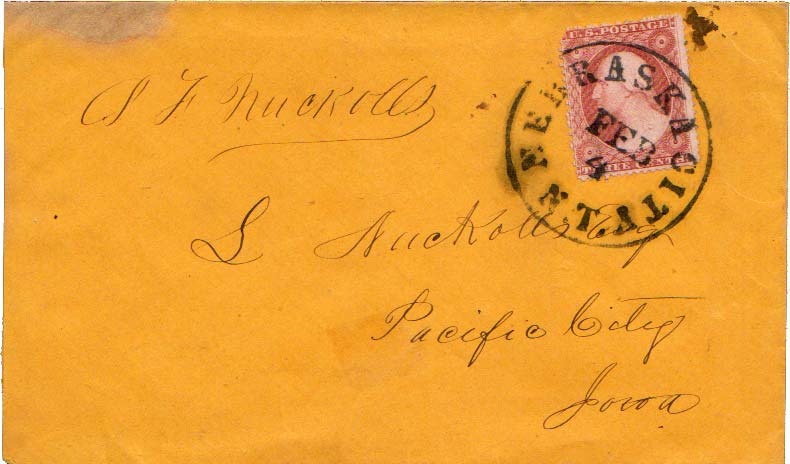 S F Nuckolls
U.S. POSTAGE
THREE CENTS
NEBRASKA CITY N.T.
FEB
4
L Nuckolls Esq
Pacific City
Iowa